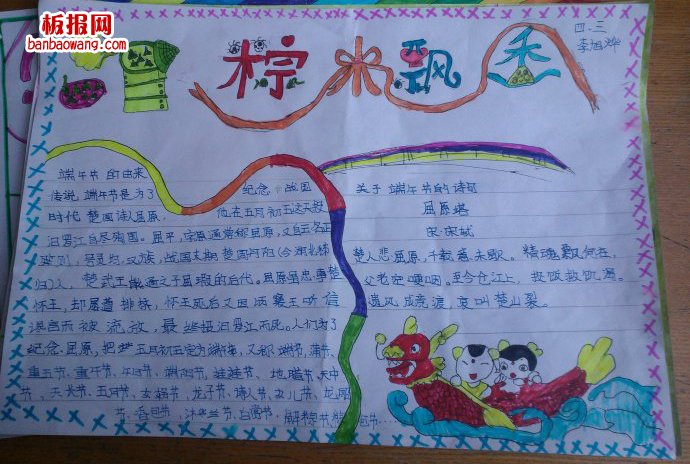 板报网
banbaowang.com
粽米飘香
四.三
李旭烨
端午节的由来
传说,端午节是为了纪念战国
时代楚国诗人屈原,他在五月初五这天投
汨罗江自尽殉国。屈平,字原通常称屈原,又自云名正
则,号灵均,汉族,战国末期楚国丹阳(今湖北秭
归)人,楚武王熊通之子屈瑕的后代。屈原虽忠事楚
怀王,却屡遭排挤,怀王死后又因顷襄王听信
谗言而被流放,最终投汨罗江而死。人们为了
纪念屈原,把五月初五定为端午,又称端节,蒲节,
重五节,重午节,午日节,端阳节,娃娃节,地腊节,天中
节,天长节,五月节,女娲节,龙子节,诗人节,女儿节,龙舟
节,浴日节,沐兰节,白赏节,解粽节
关于端午节的诗词
屈原塔
宋·宋轼
楚人悲屈原,千载意未歇。精魂飘何在,
父老空哽咽。至今仓江上,投饭救饥渴。
遗风成竞渡,哀叫楚山裂。